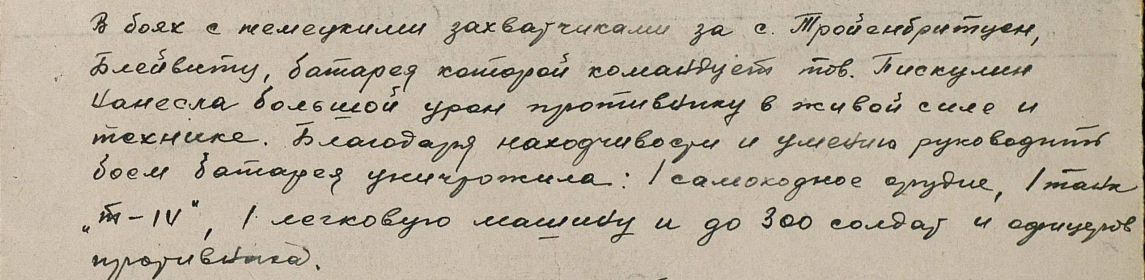 В боях с немецкими захватчиками за с. Тройенбритцен,
Блейвитц, батарея которой командует тов. Пискулин
нанесла большой урон противнику в живой силе и
технике. Благодаря находчивости и умению руководить
боем батарея уничтожила: 1 самоходное орудие, 1 танк
„т-IV", 1 легковую машину и до 300 солдат и офицеров
противника.